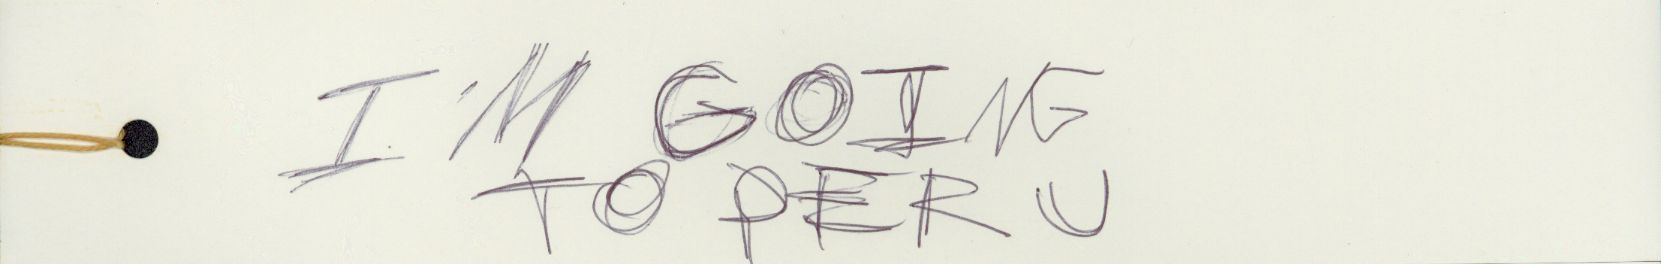 I'M GOING
TO PERU